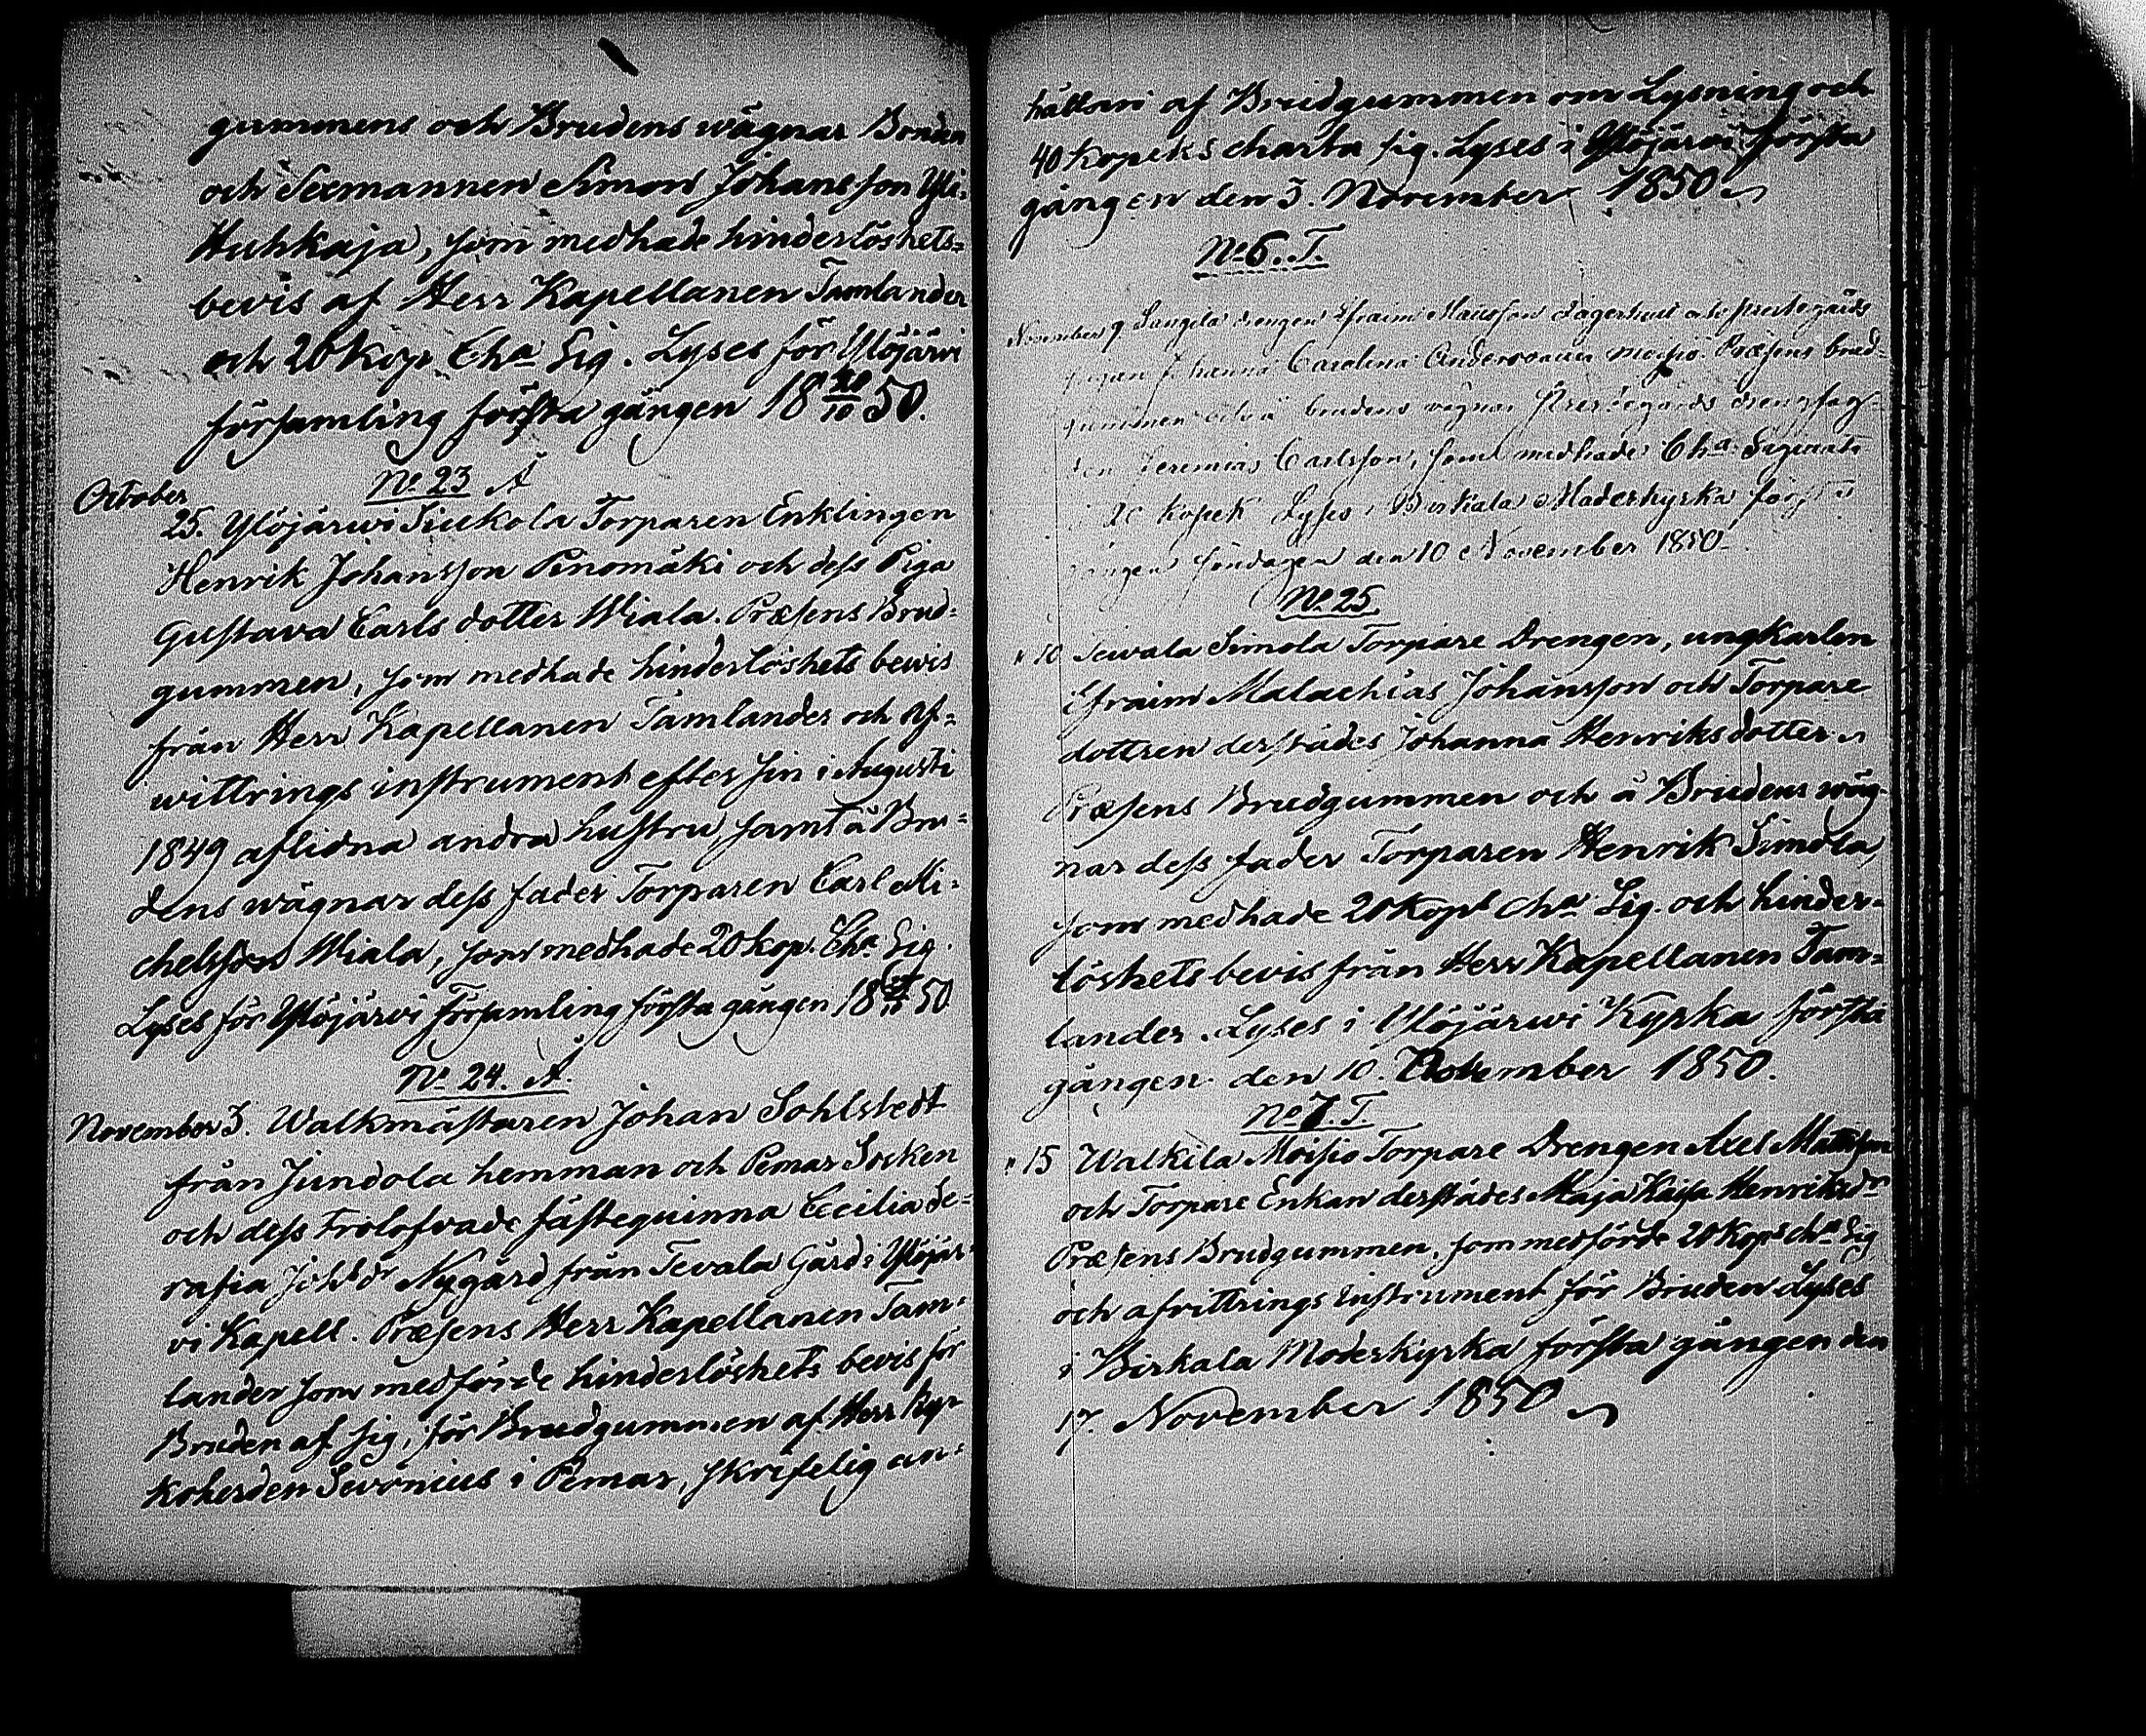 gummens och Brudens wägnar Bonden
och Sexmannen Simon Johansson Yli-
Huhkaja, som medhade hinderlöshets=
bevis af Herr Kapellanen Tamlander
och 20 Kop. Cha Sig. Lyses för Ylöjärvi
församling första gången 18 20/10 50.
No 23 A
October
25. Ylöjärwi Siukola Torparen Enklingen
Henrik Johansson Penomäki och dess Piga
Gustava Carls dotter Wiala. Præsens Brud=
gummen, som medhade hinderlöshets bewis
från Herr Kapellanen Tamlander och Af=
wittrings instrument efter sin i Augusti
1849 aflidna andra hustru, samt å Bru=
dens wägnar dess fader Torparen Carl Mi=
chelsson Wiala, som medhade 20 kop. Cha Sig.
Lyses för Ylöjärvi Församling första gången 18 50
No 24. A.
November 3. Walkmästaren Johan Sohlstedt
från Jundola hemman och Pemar Socken
och dess trolofvade fästeqvinna Cecilia Se=
rafia Johsdr Nygård från Tevala Gård i Ylöjär=
vi Kapell. Præsens Herr Kapellanen Tam=
lander som medförde hinderlöshets bevis för
Bruden af sig, för Brudgummen af Herr Kyr
koherden Sevonius i Pemar, skriftelig an=
hållan af Brudgummen om Lysning och
40 Kopeks charta sig. Lyses i Ylöjärvi första
gången den 3. November 1850
No 6. T.
November 9 drengen Efraim Mattsson Lägerhed och Prestegårds
pigan Johanna Carolina Andersdotter Moisio. Præsens brud=
gummen och å brudens wägnar Prestegårds dreng
Jeremias Carlsson, som medhade Cha Sigillata
20 kopek Lyses i Birkala Moderkyrka första
gången söndagen den 10 November 1850
No 25
" 10 Tewala Simola Torpare Drengen, ungkarlen
Efraim Malachias Johansson och Torpare
dottren derstädes Johanna Henriksdotter
Præsens Brudgummen och å Brudens wäg-
nar dess fader Torparen Henrik Simola,
som medhade 20 Kops cha Sig. och hinder=
löshets bevis från Herr Kapellanen Tam=
lander. Lyses i Ylöjärwi Kyrka första
gången den 10. November 1850.
No 7. T.
" 15 Walkila Moisio Torpare Drengen Axel Mattsson
och Torpare Enkan derstädes Maja Kaisa Henriksdr
Præsens Brudgummen, som medförde 20 Kops cha Sig
och afvittrings Instrument för Bruden Lyses
i Birkala Moderkyrka första gången den
17. November 1850